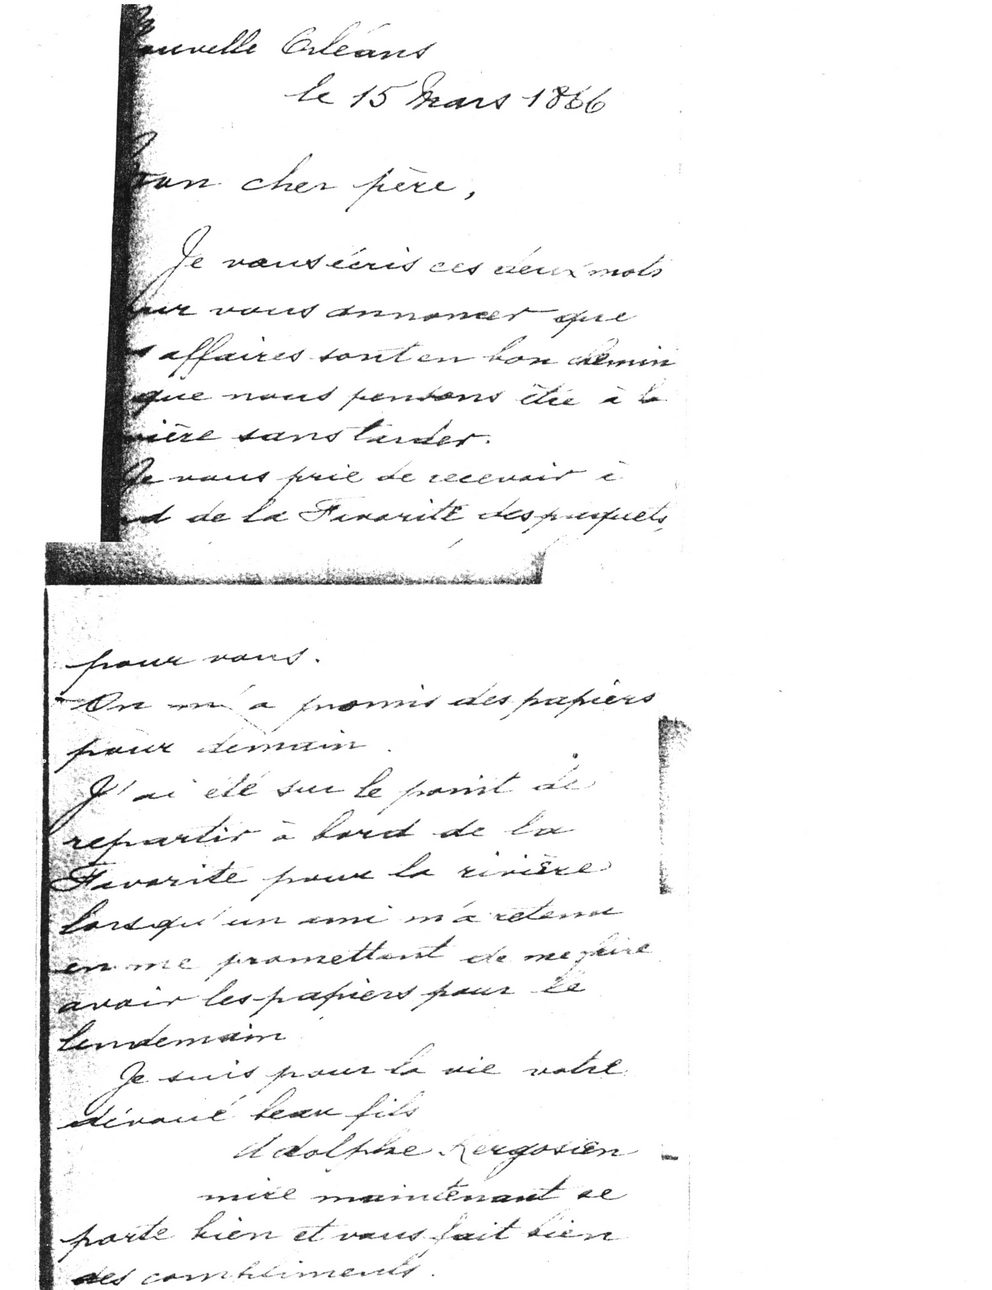 Nouvelle Orléans
le 15 Mars 1866
Mon cher père,
Je vous écris ces deux mots
pour vous annoncer que
s affaires sont en bon chemin
que nous pensons être à la
rivière sans tarder.
Je vous prie de recevoir à
d de la Favorite des paquets
pour vous.
On m'a promis des papiers
pour demain.
J'ai été sur le point de
repartir à bord de la
Favorite pour la rivière
lorsqu'un ami m'a retenu
en me promettant de me faire
avoir les papiers pour le
lendemain
Je suis pour la vie votre
dévoué beau fils
Adolphe Kergosien
mire maintenant se
porte bien et vous fait bien
des compliments.